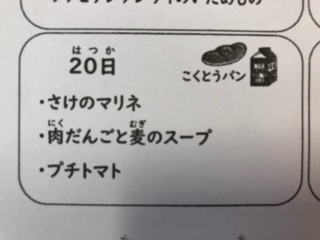 はつか
20日
こくとうパン
・さけのマリネ
にく むぎ
・肉だんごと麦のスープ
・プチトマト